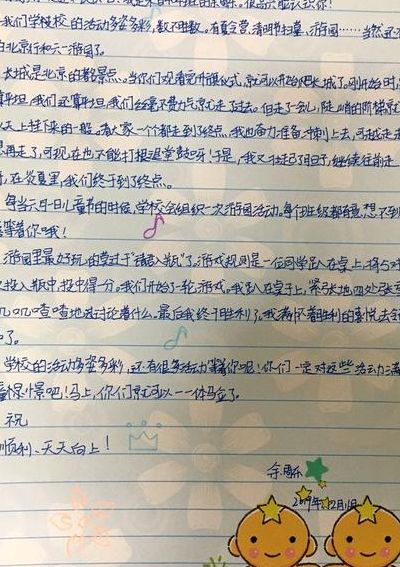 我们学校校的活动多姿多彩,数不胜数。有夏令营、清明节扫墓、游园……当然还不
北京行和六一游园了。
长城是北京的著名景点。当你们观看完升旗仪式,就可以开始爬长城了。刚开始时,
算平坦,我们还算平坦,我们丝毫不费力气就走了过去。但走了一会儿,陡峭的阶梯就
天上挂下来的一般。看大家一个个都走到了终点,我也奋力准备冲刺上去,可越走
想再走了,可现在也不能打退堂鼓呀!于是,我又继续往前走
在炎夏里,我们终于到了终点。
每当六月一日儿童节的时候,学校会组织一次游园活动。每个班级都有意想不到
等着你哦!
游园里最好玩的莫过于
了。游戏规则是一位同学趴在桌上,将
投入瓶中,投中得分。我们开始了一轮游戏。我趴在桌子上,紧张地四处张
叽叽喳喳地讨论着什么。最后我终于胜利了。我满怀着胜利的喜悦去
了。
学校的活动多姿多彩,还有很多活动等着你呢!你们一定对这些活动满
憧憬吧!马上,你们就可以一一体验了。
祝
顺利、天天向上!
2019年12月1日